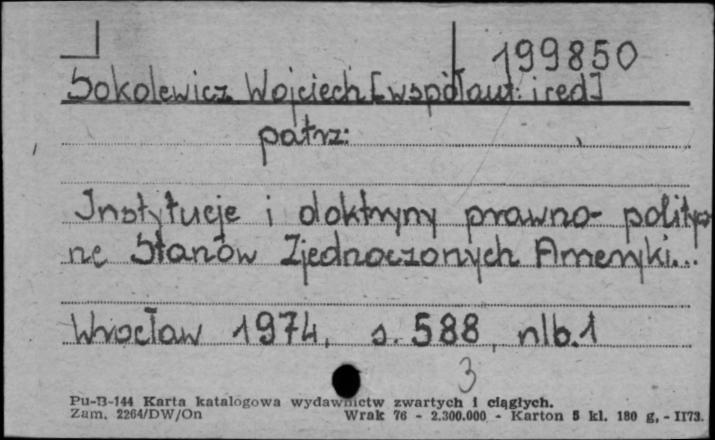 199850
Sokolewicz Wojciech [współaut. i red]
patrz:
Instytucje i doktryny prawno- polity
ne Stanów Zjednoczonych Ameryki...
Wrocław 1974, s. 588, nlb. 1
3
Pu-B-144 Karta katalogowa wydawnictw zwartych i ciągłych.
Zam. 2264/DW/On Wrak 76 - 2.300.000 - Karton 5 kl. 180 g, - II73.